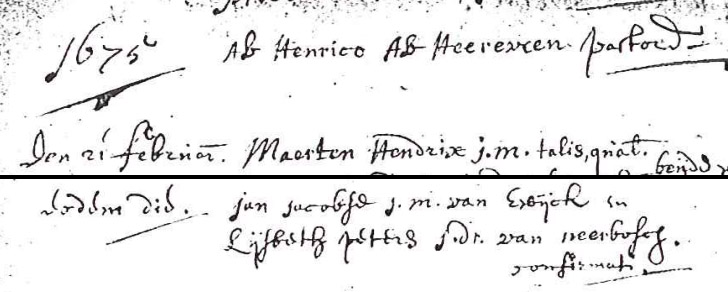 1675 Ab Henrico Ab Heerevren pastore
Den 21 februar. Maerten Hendrix j.m. talis, qual.
beijde
Eodem die. jan jacobse j.m. van Ewijck en
Lijsbeth peters j.dr. van neerbosch.
confirmati.